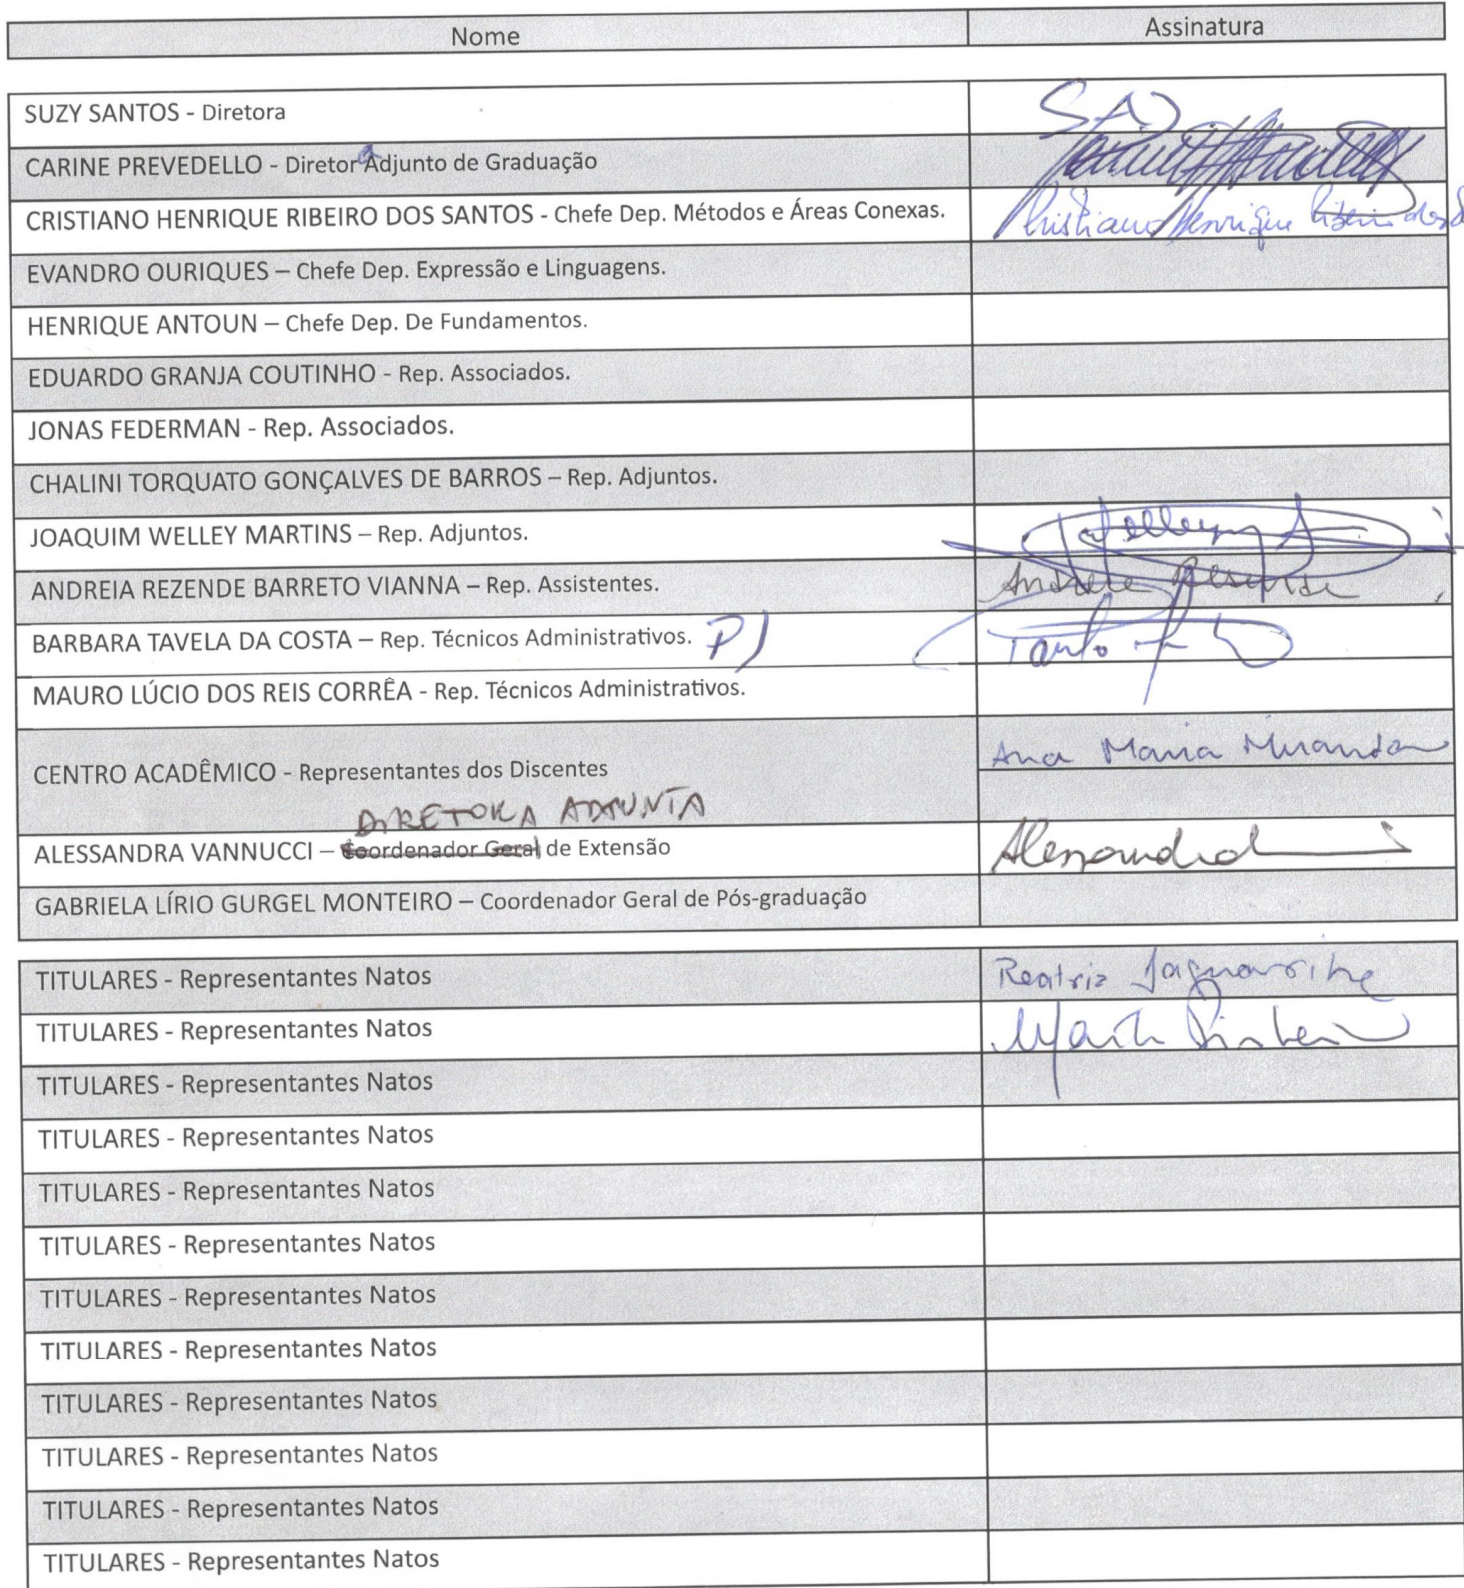 Nome Assinatura
SUZY SANTOS - Diretora
CARINE PREVEDELLO - Diretora Adjunto de Graduação
CRISTIANO HENRIQUE RIBEIRO DOS SANTOS - Chefe Dep. Métodos e Áreas Conexas. Cristiano Henrique Ribeiro dos
EVANDRO OURIQUES – Chefe Dep. Expressão e Linguagens.
HENRIQUE ANTOUN – Chefe Dep. De Fundamentos.
EDUARDO GRANJA COUTINHO - Rep. Associados.
JONAS FEDERMAN - Rep. Associados.
CHALINI TORQUATO GONÇALVES DE BARROS – Rep. Adjuntos.
JOAQUIM WELLEY MARTINS – Rep. Adjuntos.
ANDREIA REZENDE BARRETO VIANNA – Rep. Assistentes. Andreia Resende
BARBARA TAVELA DA COSTA – Rep. Técnicos Administrativos. P/
MAURO LÚCIO DOS REIS CORRÊA - Rep. Técnicos Administrativos.
CENTRO ACADÊMICO - Representantes dos Discentes Ana Maria Miranda
DIRETORA ADJUNTA
ALESSANDRA VANNUCCI – Coordenador Geral de Extensão Alessandra
GABRIELA LÍRIO GURGEL MONTEIRO – Coordenador Geral de Pós-graduação
TITULARES - Representantes Natos Beatriz Jaguaribe
TITULARES - Representantes Natos
TITULARES - Representantes Natos
TITULARES - Representantes Natos
TITULARES - Representantes Natos
TITULARES - Representantes Natos
TITULARES - Representantes Natos
TITULARES - Representantes Natos
TITULARES - Representantes Natos
TITULARES - Representantes Natos
TITULARES - Representantes Natos
TITULARES - Representantes Natos